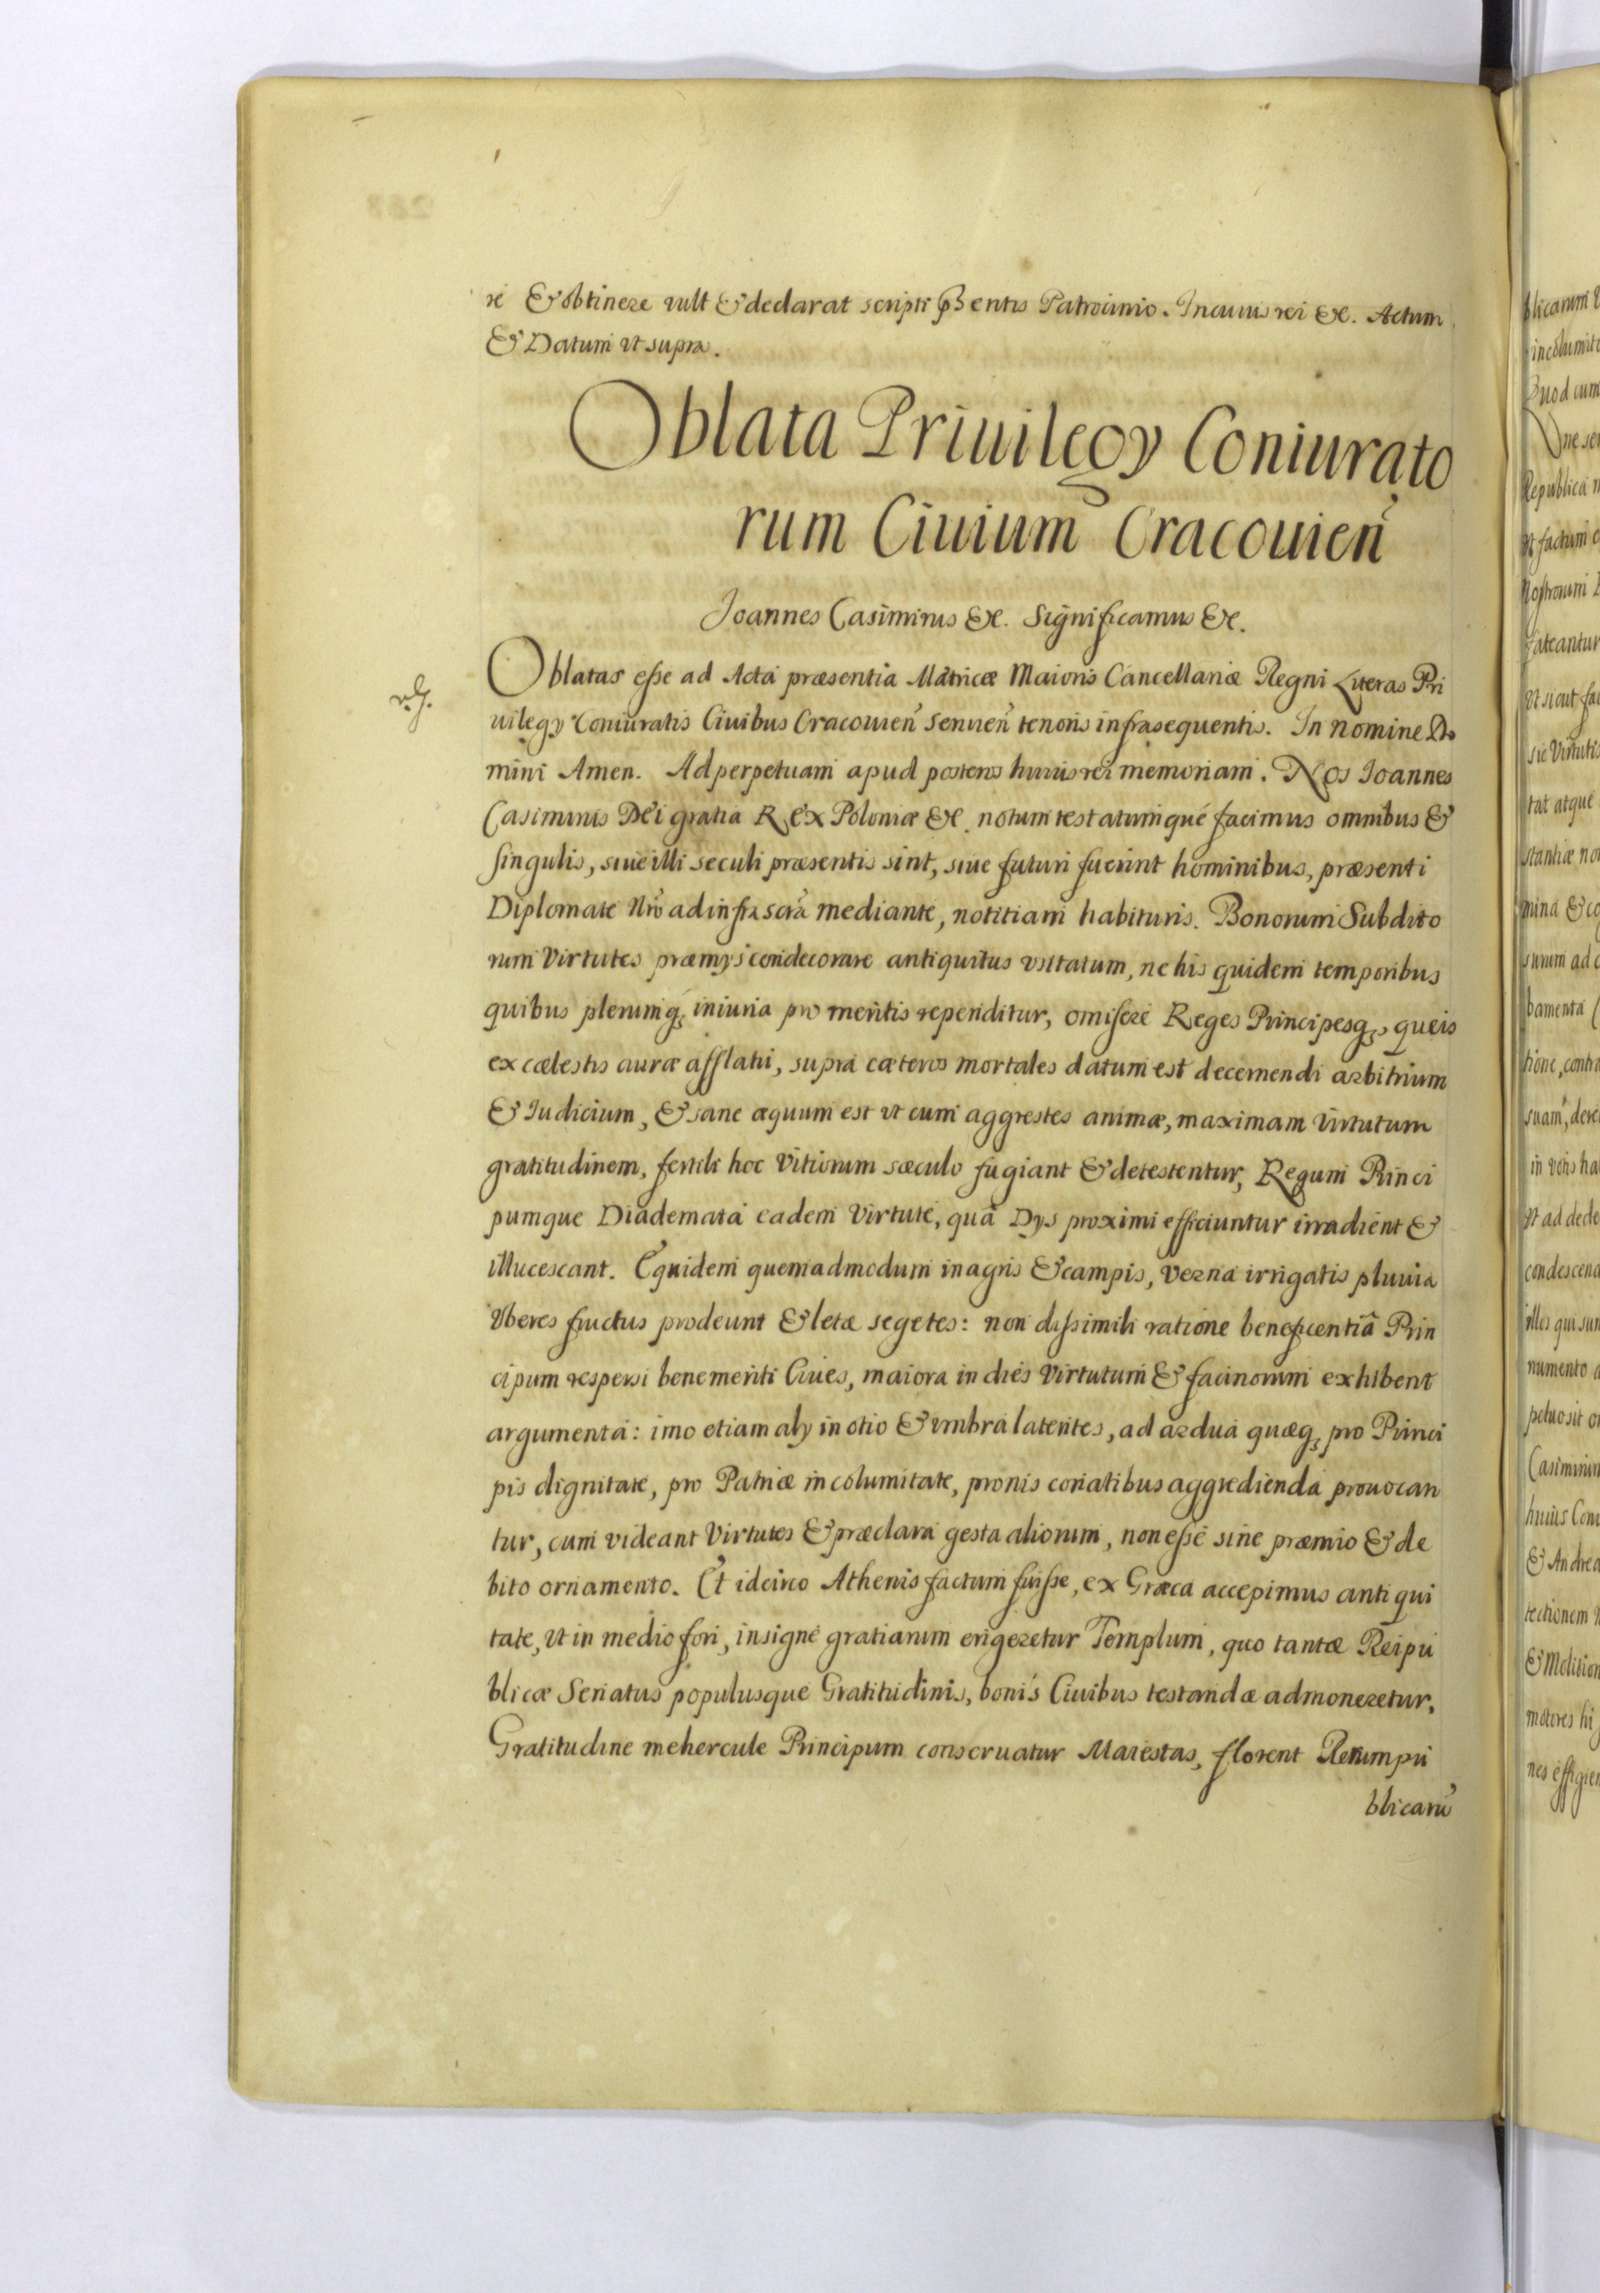 re & obtinere vult & declarat scripti pßentis Patrocinio. In cuius rei &c. Actum
& Datum ut supra.
Oblata Priuilegy Coniurato
rum Ciuium Cracouien̄
Joannes Casimirus &c. Significamus &c.
Oblatas esse ad Acta præsentia Matricæ Maioris Cancellariæ Regni Literas Pri
uilegy Coniuratis Ciuibus Cracouien̄ seruien̄ tenoris infrasequentis. In Nomine Do
mini Amen. Ad perpetuam apud posteros huius rei memoriam. Nos Ioannes
Casimirus Dei gratia Rex Poloniæ &c. notum testatumque facimus omnibus &
singulis, siue illi seculi præsentis sint, siue futuri fuerint hominibus, præsenti
Diplomate Nr̄o ad infra scr̄a mediante, notitiam habituris. Bonorum Subdito
rum Virtutes præmys condecorare antiquitus usitatum, ne his quidem temporibus
quibus plerumq; iniuria pro meritis rependitur, omisere Reges Principesq;, queis
ex cælestis auræ afflatu, supra cæteros mortales datum est decernendi arbitrium
& Iudicium, & sane æquum est ut cum aggrestes animæ, maximam Virtutum
gratitudinem, fertili hoc Vitiorum sæculo fugiant & detestentur, Regum Princi
pumque Diademata eadem Virtute, quâ Dys proximi efficiuntur irradient &
illucescant. Equidem quemadmodum in agris & campis, verna irrigatis pluuia
Vberes fructus prodeunt & letæ segetes: non dissimili ratione beneficentiâ Prin
cipum respersi benemeriti Ciues, maiora in dies Virtutum & facinorum exhibent
argumenta: imo etiam aly in otio & vmbra latentes, ad ardua quæq; pro Princi
pis dignitate, pro Patriæ incolumitate, pronis conatibus aggredienda prouocan
tur, cum videant Virtutes & præclara gesta aliorum, non esse sine præmio & de
bito ornamento. Et idcirco Athenis factum fuisse, ex Græca accepimus antiqui
tate, ut in medio fori, insigne gratiarum erigeretur Templum, quo tantæ Reipu
blicæ Senatus populusque Gratitudinis, bonis Ciuibus testandæ admoneretur.
Gratitudine mehercule Principum conseruatur Maiestas, florent Rerumpu
blicarū